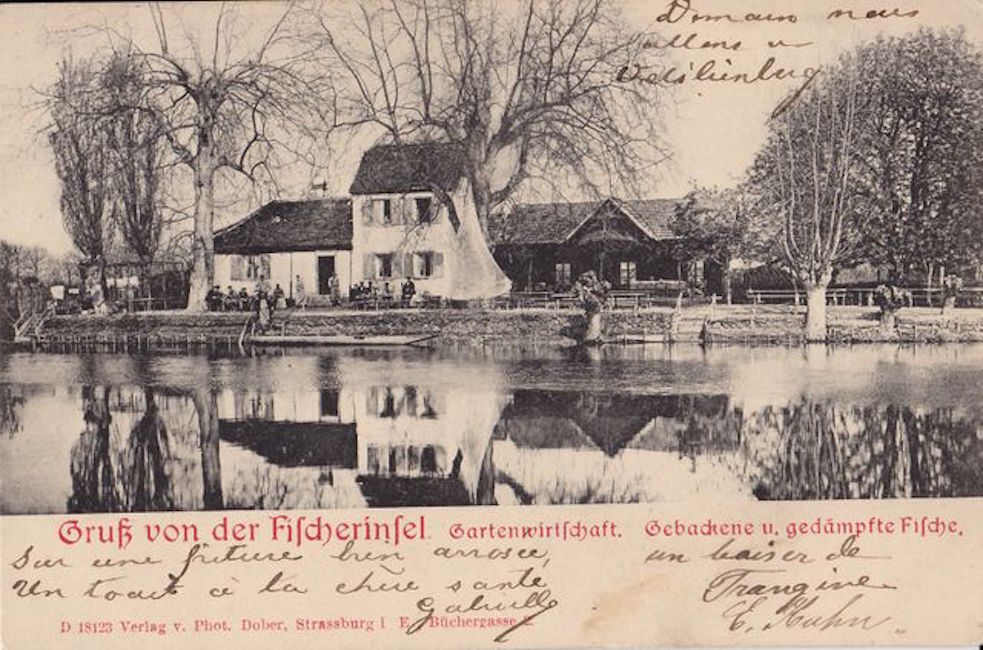 Demain nous
allons à
Gruß von der Fischerinsel. Gartenwirtschaft. Gebackene u. gedämpfte Fische.
Sur une friture bien arrosée,
Un toast à la chère santé
Gabrielle
un baiser de
E. Hahn
D 18123 Verlag v. Phot. Dober, Strassburg i E, Büchergasse 2